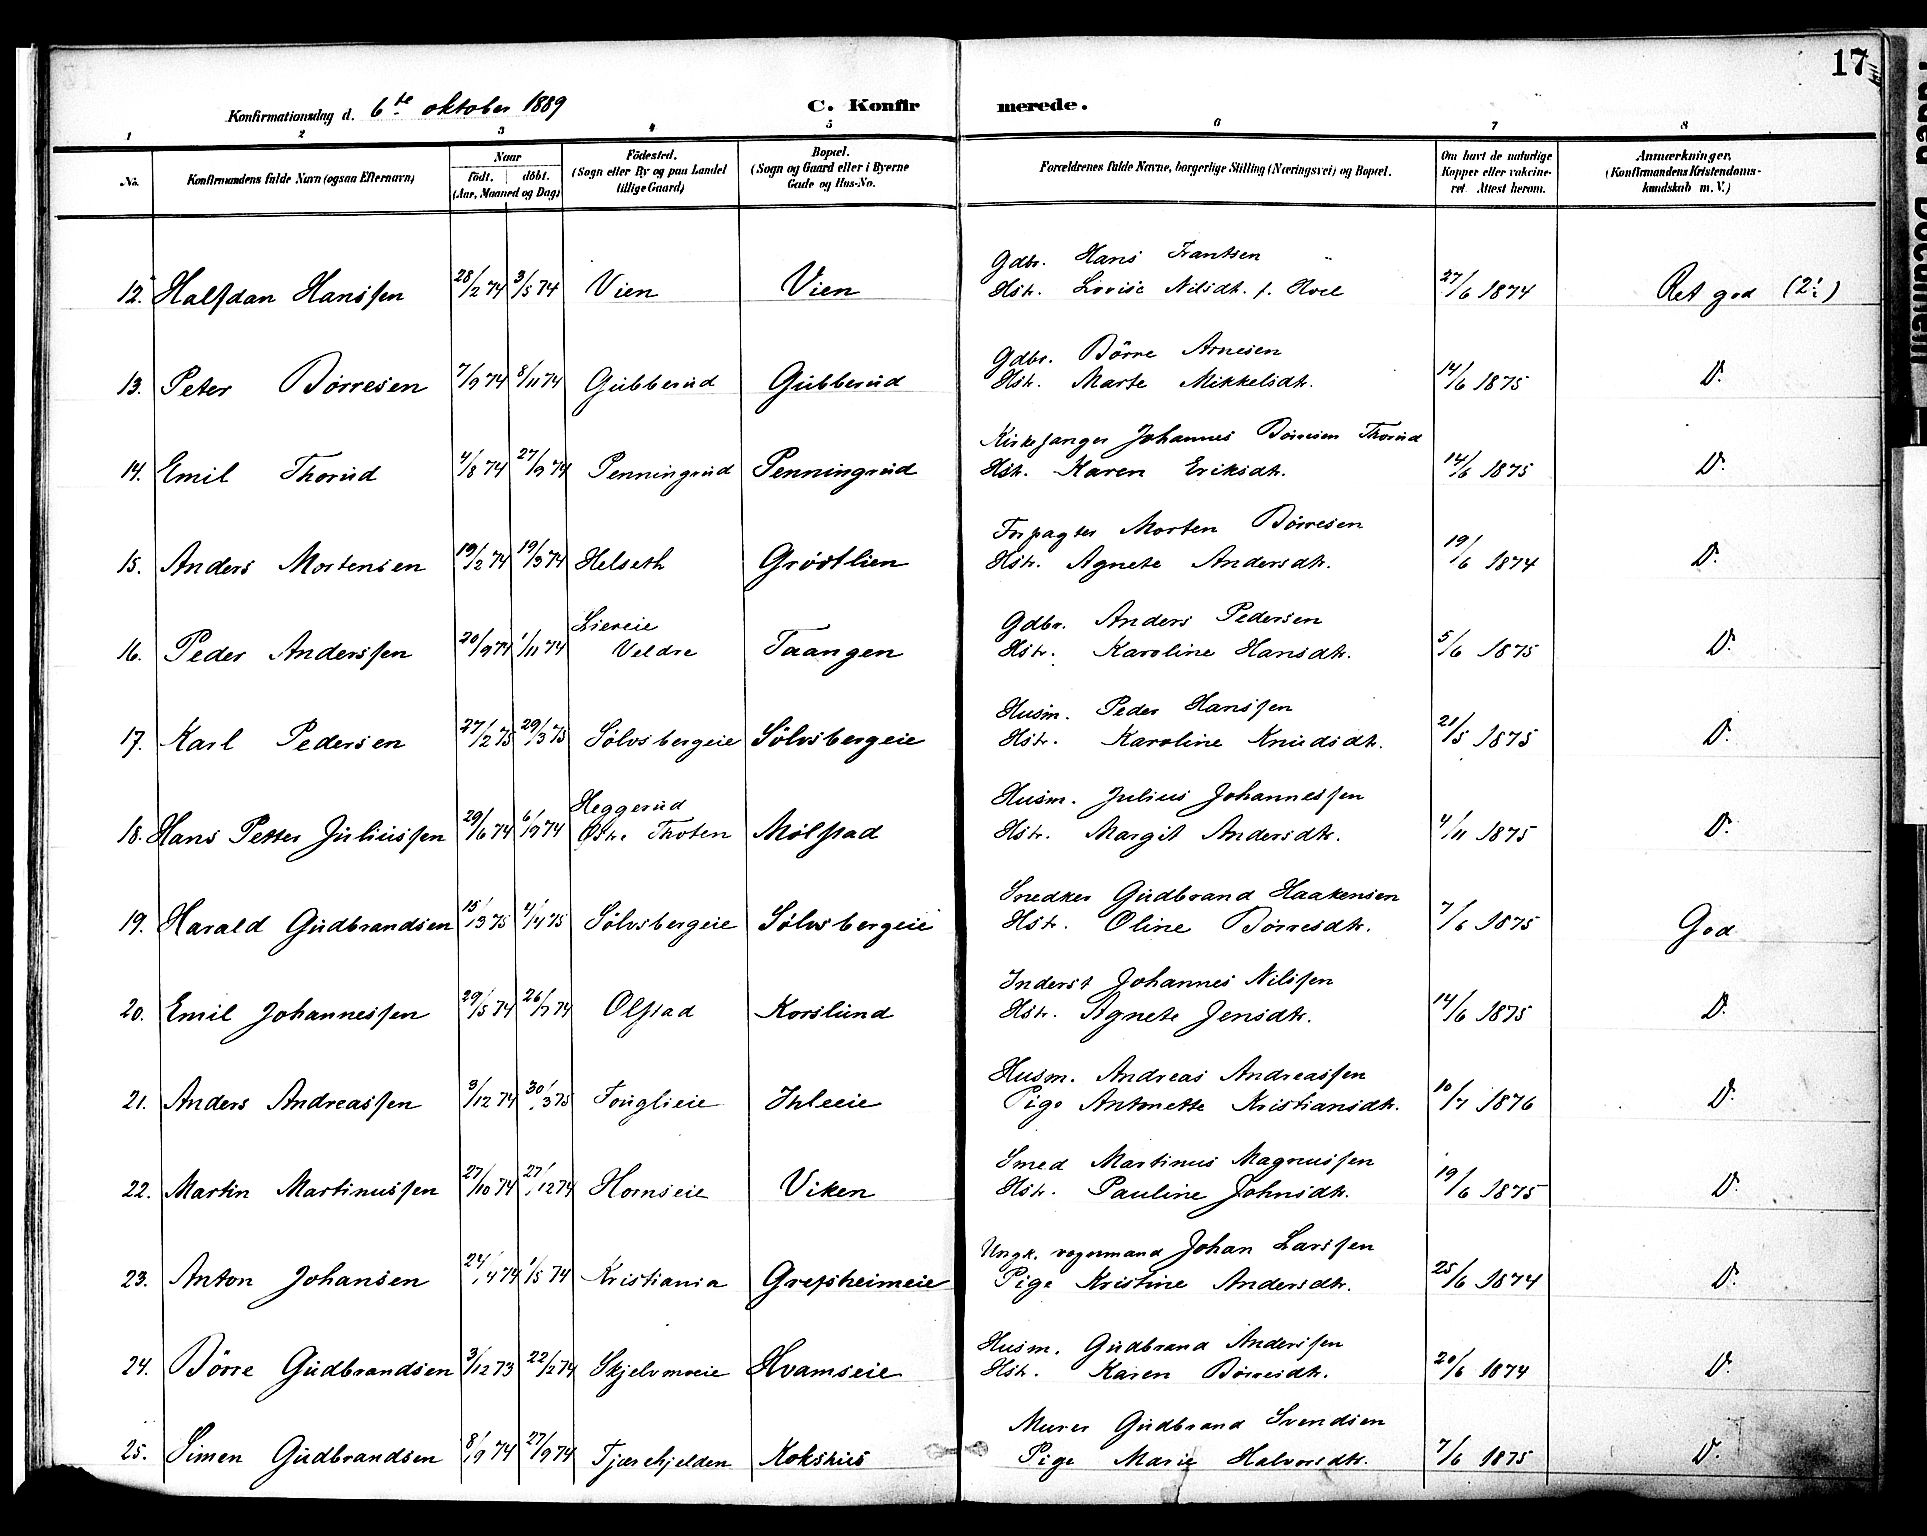 17
Konfirmationsdag d. 6te oktober 1889
C. Konfirmerede.
1 2 3 4 5 6 7 8
No. Konfirmandens fulde Navn (ogsaa Efternavn) Naar Födt. döbt. (Aar, Maaned og Dag) Födested. (Sogn eller By og paa Landet tillige Gaard) Bopæl. (Sogn og Gaard eller i Byerne Gade og Hus-No. Forældrenes fulde Navne, borgerlige Stilling (Næringsvei) og Bopæl. Om havt de naturlige Kopper eller vakcineret. Attest herom. Anmærkninger. (Konfirmandens Kristendomskundskab m. V.)
Gdbr. Hans Frantsen
12. Halfdan Hansſen 28/2 74 3/5 74 Vien Vien Hstr. Lovise Nilsdtr. f. Hoel 27/6 1874 Ret god (2:)
Gdbr. Börre Arnesen
13. Peter Börresen 7/9 74 8/11 74 Gubberud Gubberud Hstr. Marte Mikkelsdtr. 14/6 1875 D.
Kirkesanger Johannes Börresen Thorud
14. Emil Thorud 4/8 74 27/9 74 Penningrud Penningrud Hstr. Karen Eriksdtr. 14/6 1875 D.
Forpagter Morten Börresen
15. Anders Mortensen 19/2 74 19/3 74 Helseth Gröstlien Hstr. Agnete Andersdtr. 19/6 1874 D.
Liereie Gdbr. Anders Pedersen
16. Peder Andersſen 20/9 74 1/11 74 Veldre Taangen Hstr. Karoline Hansdtr. 5/6 1875 D.
Husm. Peder Hansſen
17. Karl Pedersen 27/2 75 29/3 75 Sölvsbergeie Sölvsbergeie Hstr. Karoline Knudsdtr. 21/5 1875 D.
Heggerud Husm. Julius Johannesſen
18. Hans Petter Juliusſen 29/6 74 6/9 74 Östr. Thoten Mölstad Hstr. Margit Andersdtr. 4/11 1875 D.
Snedker Gudbrand Haakensen
19. Harald Gudbrandsen 15/3 75 4/4 75 Sölvsbergeie Sölvsbergeie Hstr. Oline Börresdtr. 7/6 1875 God
Inderst Johannes Nilsſen
20. Emil Johannesſen 29/5 74 26/7 74 Olstad Korslund Hstr. Agnete Jensdtr. 14/6 1875 D.
Husm. Andreas Andreasſen
21. Anders Andreasſen 3/12 74 30/3 75 Fouglieie Ihleeie Pige Antonette Kristiansdtr. 10/7 1876 D.
Smed Martinus Magnusſen
22. Martin Martinusſen 27/10 74 27/12 74 Hornseie Viken Hstr. Pauline Johnsdtr. 19/6 1875 D.
Ungk. vognmand Johan Larsſen
23. Anton Johansen 24/4 74 1/5 74 Kristiania Grefsheimeie Pige Kristine Andersdtr. 25/6 1874 D.
Husm. Gudbrand Andersſen
24. Börre Gudbrandsen 3/12 73 22/2 74 Skjelvmoeie Hvamseie Hstr. Karen Börresdtr. 20/6 1874 D.
Murer Gudbrand Svendsen
25. Simen Gudbrandsen 8/9 74 27/9 74 Tjærehjelden Kokshus Pige Marie Halvorsdtr. 7/6 1875 D.